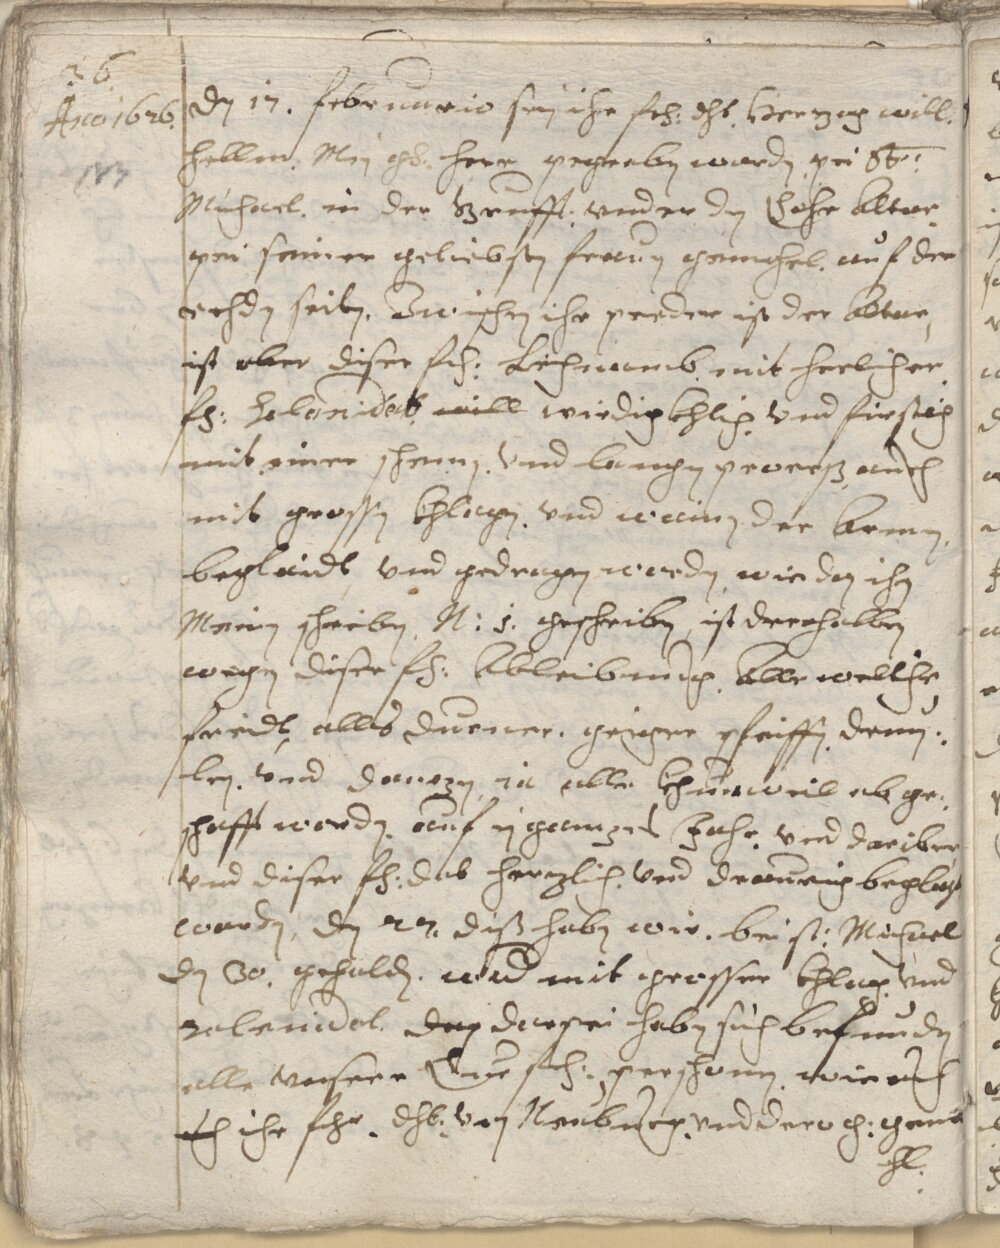 36
Ano 1626.
Dn 17. februario sein ihr fch: dht. Herzog will:
hellm. Mein gd: herr pegraben worden, pei St:
Michael. in der grufft. vnder dn Chohr Altar
pei seiner geliebsten frauen gemahel. auf der
rehdn seiten. Zwischen ihr peeder ist der Altar,
ist aber diser fch: Leichnamb. mit herlicher
fch: Solenidet. wirdigkhlich. vnd firstlich
mit einer schenen. vnd langen proceß, auch
mit grossen khlagen. vnd wainen der Armen,
beglaidt, vnd gedragen worden, wie dan ihn
Meinen schreiben, N: 1. geschriben, ist derhalben
wegen diser fch: Ableibung. Alle weltliche
freidt, alles Durner. geiger pfeiffen drum:
len. vnd danzen, in alle khurzweil ab ge:
schafft worden, auf ein ganzes Jahr. vnd dariber
vnd diser fch: dot herzlich. vnd draurig beglagt
worden, dn 27. diß haben wir. bei st: Michael
dn 30. gehalden. vnd mit grosser khlag. vnd
solenidet. dan darpei haben sich befunden
alle vnsere Chur fch: pershonen, wie auch
ihr fhr. dht: von Neuburg. vnd dero g: gema
hl.